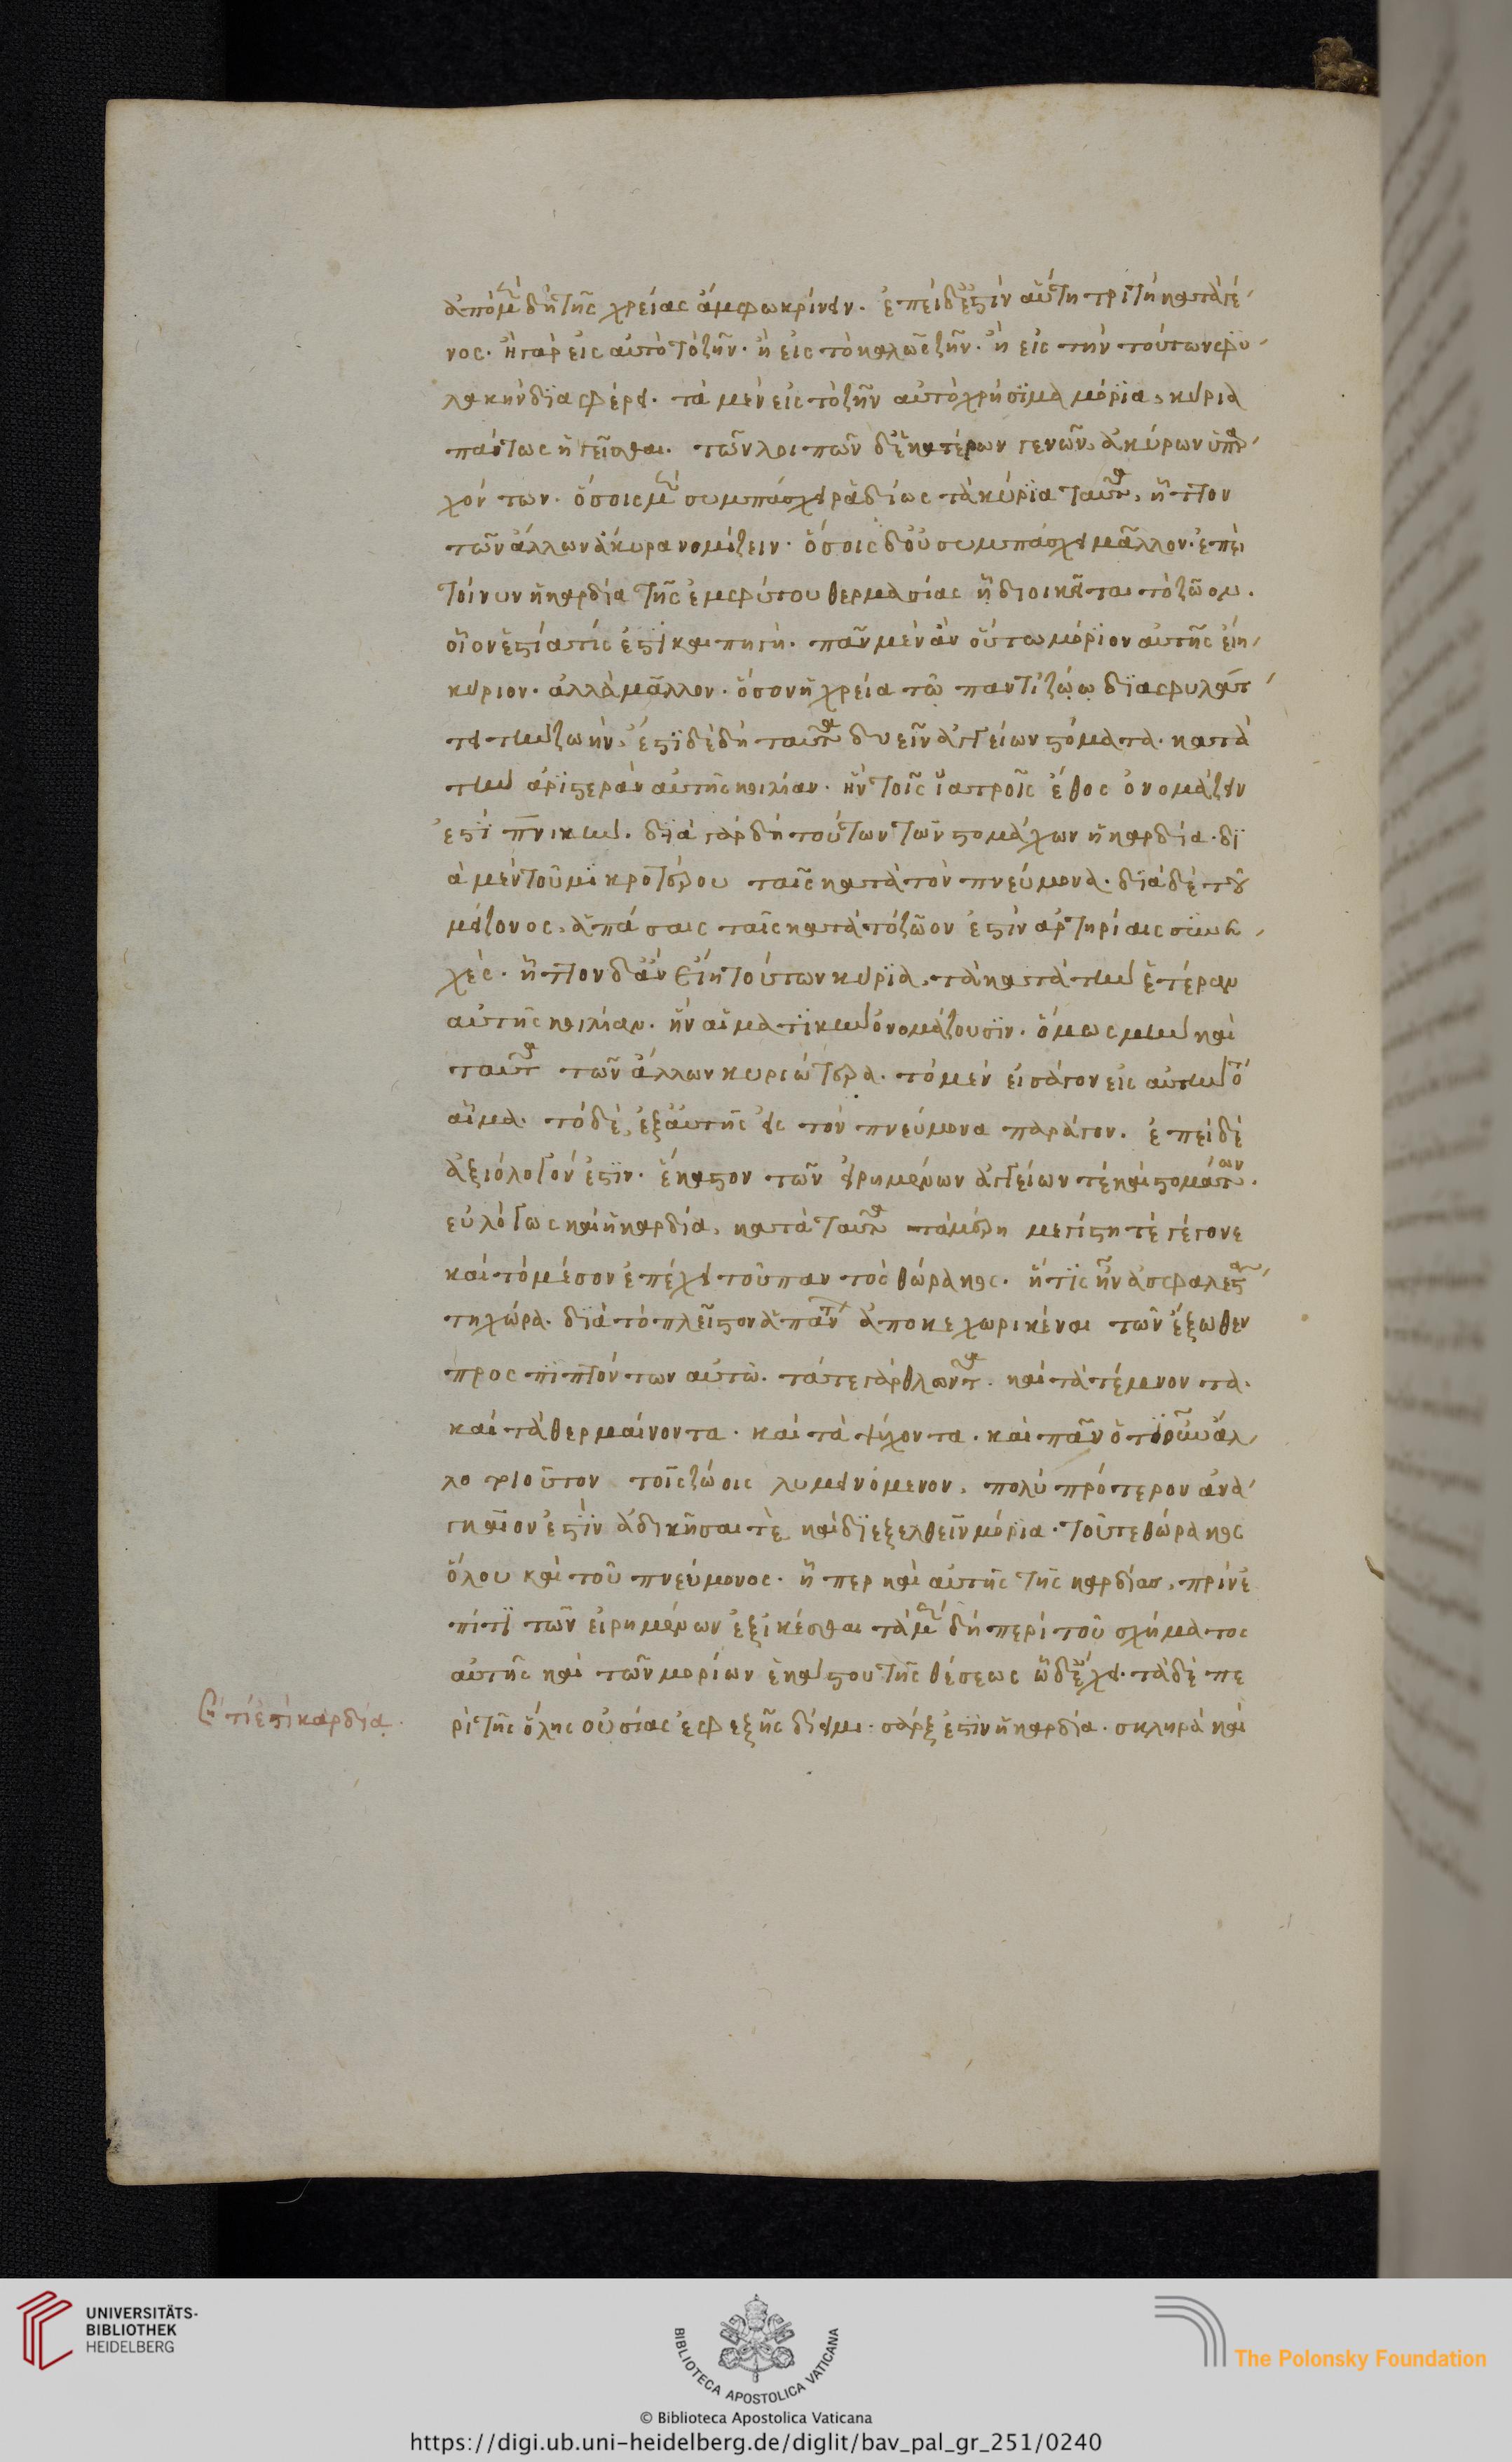 ἀπὸ μὲν δὴ τῆς χρείας ἄμφω κρίνειν. ἐπεὶ δ' ἐστὶν αὕτη τριττὴ κατὰ γέ
νος. ἢ γὰρ εἰς αὐτὸ τὸ ζῆν. ἢ εἰς τὸ καλῶς ζῆν. ἢ εἰς τὴν τούτων φυ
λακὴν διαφέρει. τὰ μὲν εἰς τὸ ζῆν αὐτὸ χρήσιμα μόρια, κύρια
πάντως ἡγεῖσθαι. τῶν λοιπῶν δ' ἑκατέρων γενῶν, ἀκύρων ὑπαρ
χόντων. ὅσοις μὲν συμπάσχει ῥαδίως τὰ κύρια ταῦτα, ἧττον
τῶν ἄλλων ἄκυρα νομίζειν. ὅσοις δ' οὐ συμπάσχει μᾶλλον. ἐπεὶ
τοίνυν ἡ καρδία τῆς ἐμφύτου θερμασίας ᾗ διοικεῖται τὸ ζῶον.
οἷον ἑστία τίς ἐστι καὶ πηγή. πᾶν μὲν ἂν οὕτω μόριον αὐτῆς εἴη
κύριον. ἀλλὰ μᾶλλον. ὅσον ἡ χρεία τῷ παντὶ ζώῳ διαφυλάτ
τει τὴν ζωήν. ἔστι δὲ δὴ ταῦτα δυεῖν ἀγγείων στόματα. κατὰ
τὴν ἀριστερὰν αὐτῆς κοιλίαν. ἣν τοῖς ἰατροῖς ἔθος ὀνομάζειν
ἐστὶ πνικὴν. διὰ γὰρ δὴ τούτων τῶν στομάχων ἡ καρδία. δι
ὰ μὲν τοῦ μικροτέρου ταῖς κατὰ τὸν πνεύμονα. διὰ δὲ τοῦ
μείζονος. ἁπάσαις ταῖς κατὰ τὸ ζῶον ἐστὶν ἀρτηρίαις συνε
χές. ἧττον δ' ἂν εἴη τούτων κύρια, τὰ κατὰ τὴν ἑτέραν
αὐτῆς κοιλίαν. ἣν αἱματικὴν ὀνομάζουσιν. ὅμως μὴν καὶ
ταῦτα τῶν ἄλλων κυριώτερα. τὸ μὲν εἰσάγον εἰς αὐτὴν τὸ
αἷμα. τὸ δὲ, ἐξ αὐτῆς εἰς τὸν πνεύμονα παράγον. ἐπεὶ δὲ
ἀξιόλογόν ἐστιν. ἕκαστον τῶν εἰρημένων ἀγγείων τὲ καὶ στομάτων.
εὐλόγως καὶ ἡ καρδία, κατὰ ταῦτα τὰ μέρη μεγίστη τὲ γέγονε
καὶ τὸ μέσον ἐπέχει τοῦ παντὸς θώρακος. ἥτις ἦν ἀσφαλεστά
τη χώρα. διὰ τὸ πλεῖστον ἁπάντων ἀποκεχωρικέναι τῶν ἔξωθεν
προσπιπτόντων αὐτῷ. τά τε γὰρ θλῶντα. καὶ τὰ τέμνοντα.
καὶ τὰ θερμαίνοντα. καὶ τὰ ψύχοντα. καὶ πᾶν ὁτιοῦν ἄλ
λο τοιοῦτον τοῖς ζώοις λυμαινόμενον. πολὺ πρότερον ἀνα
γκαῖόν ἐστιν ἀδικῆσαι τὲ καὶ διεξελθεῖν μόρια. τοῦ τε θώρακος
ὅλου καὶ τοῦ πνεύμονος. ἤπερ καὶ αὐτῆς τῆς καρδίας, πρὶν ἐ
πί τι τῶν εἰρημένων ἐξικέσθαι τὰ μὲν δὴ περὶ τοῦ σχήματος
αὐτῆς καὶ τῶν μορίων ἑκάστου τῆς θέσεως ὧδ' ἔχει. τὰ δὲ πε
ρὶ τῆς ὅλης οὐσίας ἐφεξῆς δίειμι. σάρξ ἐστιν ἡ καρδία. σκληρὰ καὶ
τί ἐστι καρδία.
UNIVERSITÄTS-
BIBLIOTHEK
HEIDELBERG
BIBLIOTECA APOSTOLICA VATICANA
The Polonsky Foundation
© Biblioteca Apostolica Vaticana
https://digi.ub.uni-heidelberg.de/diglit/bav_pal_gr_251/0240